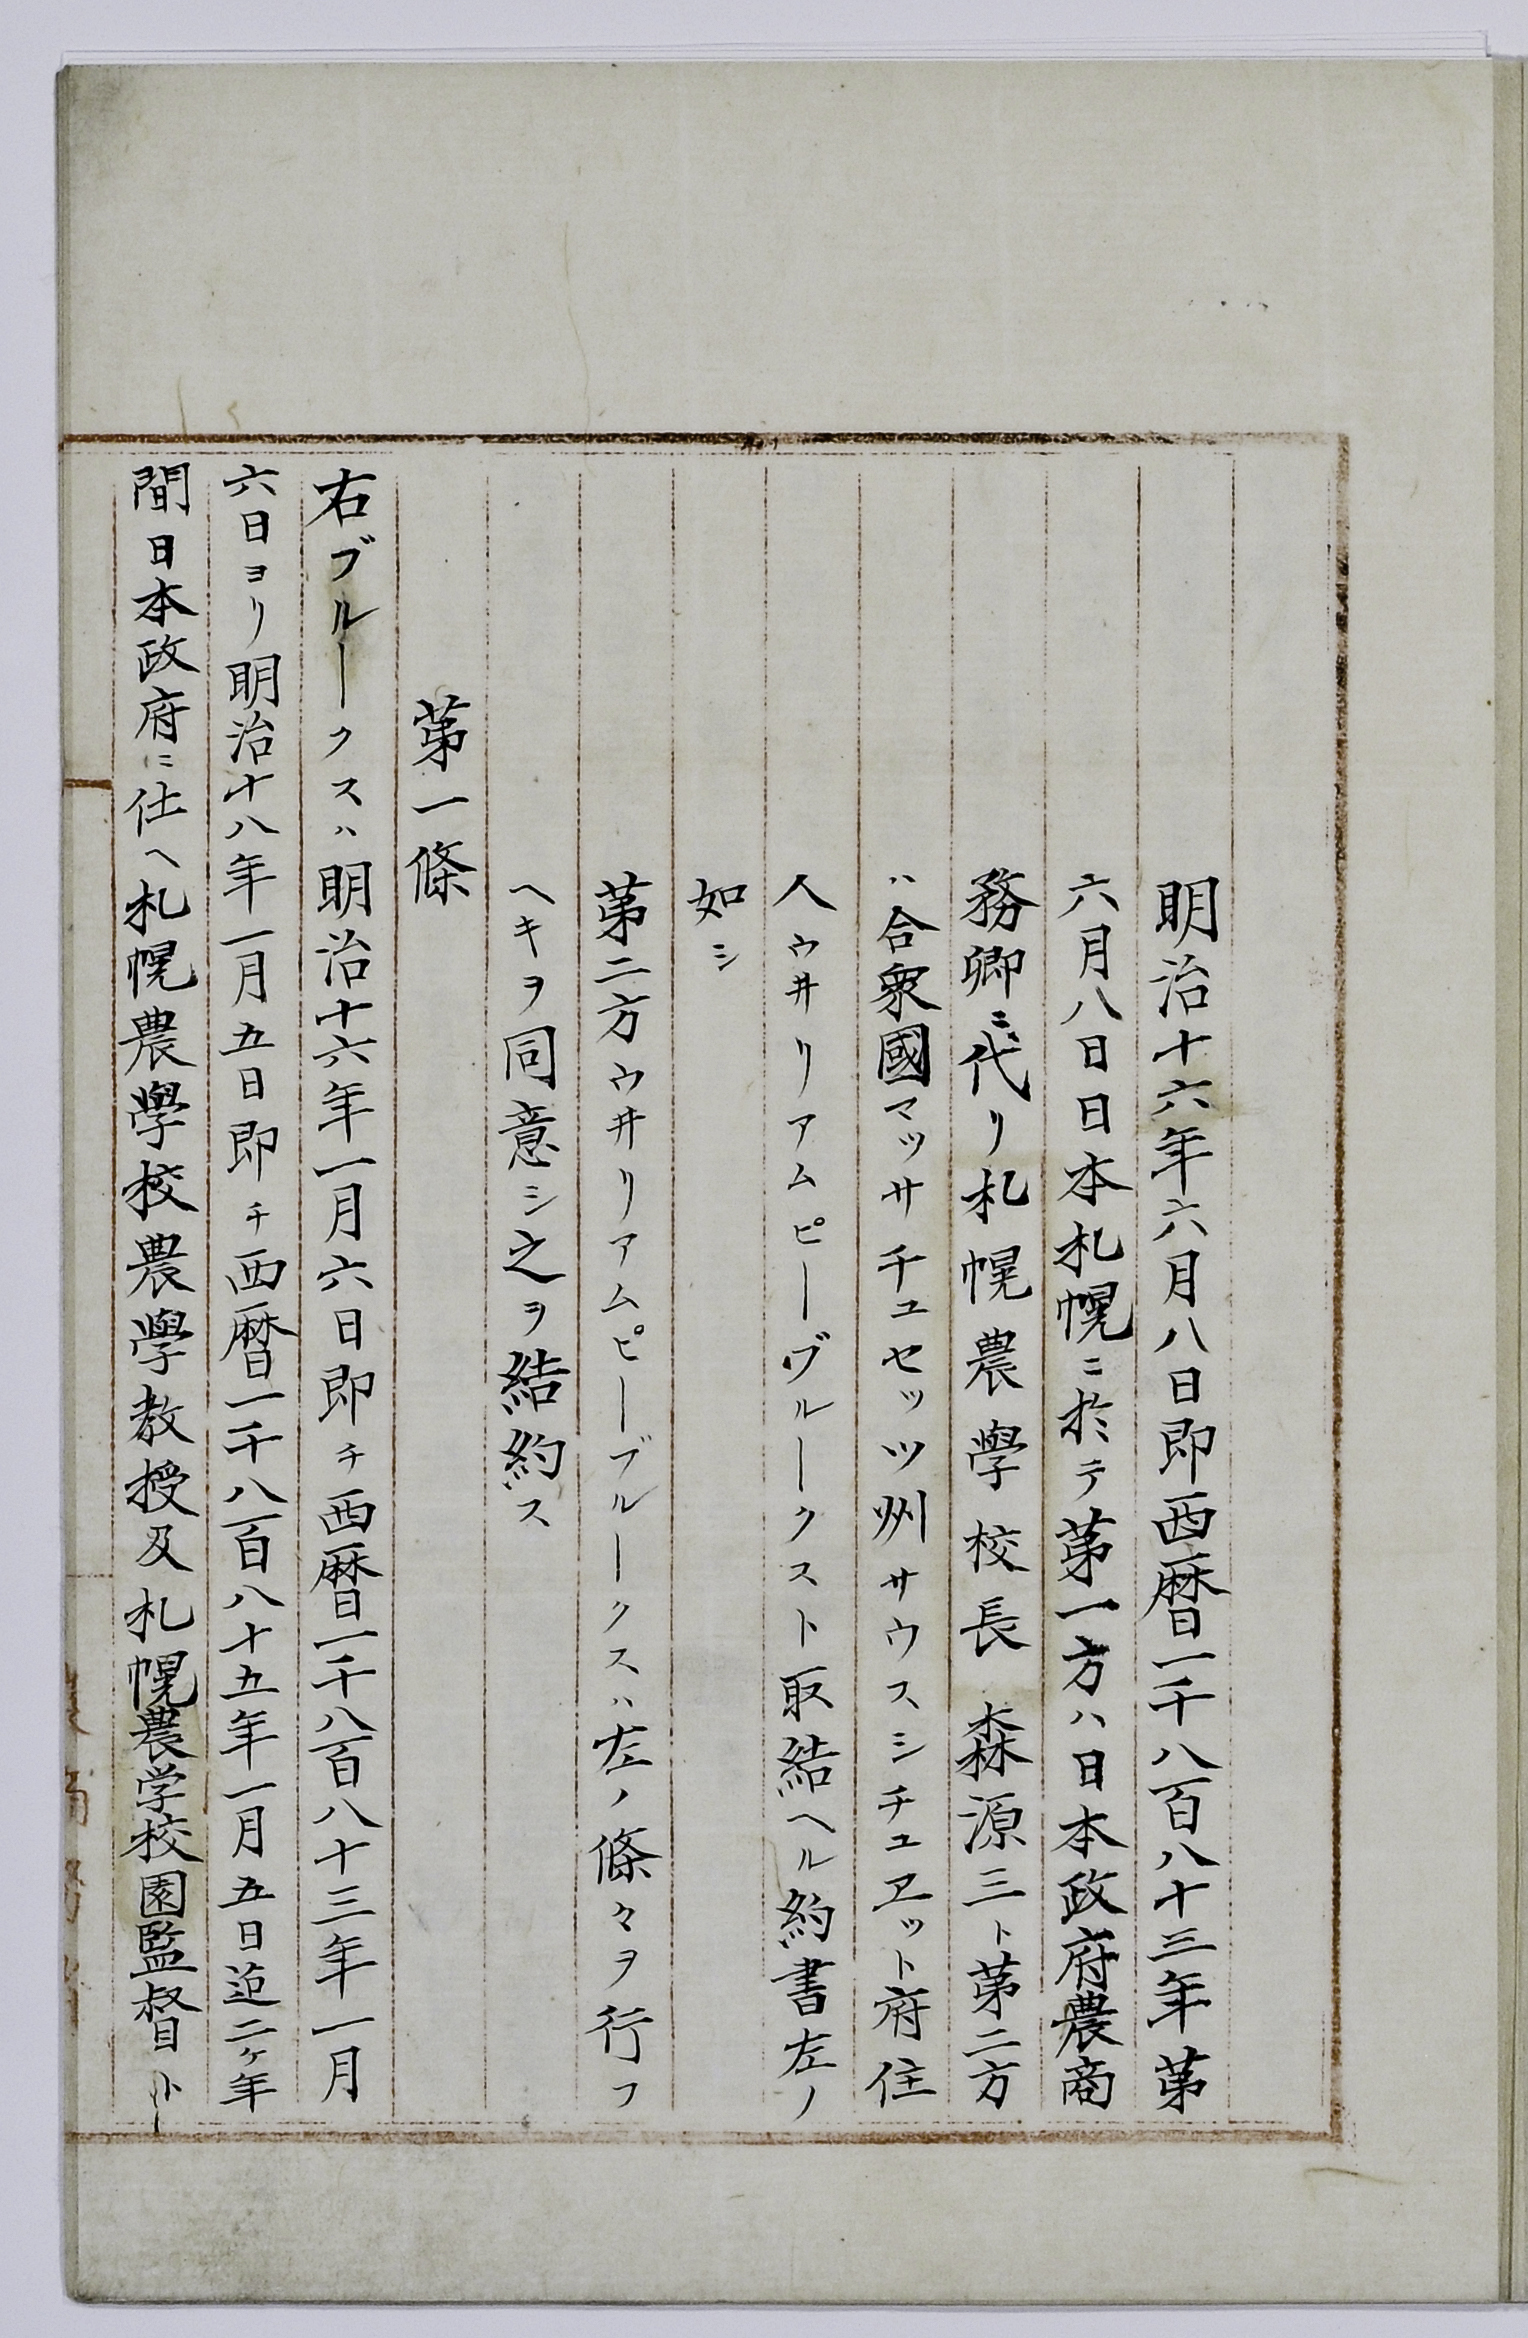 明治十六年六月八日即西暦一千八百八十三年第
六月八日日本札幌ニ於テ第一方ハ日本政府農商
務卿ニ代リ札幌農學校長森源三ト第二方
ハ合衆國マッサチュセッツ州サウスシチュエット府住
人ウ井リアムピーヴルークスト取結ヘル約書左ノ
如シ
第二方ウ井リアムピーブルークスハ左ノ條々ヲ行フ
ヘキヲ同意シ之ヲ結約ス
第一條
右ブルークスハ明治十六年一月六日即チ西暦一千八百八十三年一月
六日ヨリ明治十八年一月五日即チ西暦一千八百八十五年一月五日迠二ケ年
間日本政府ニ仕ヘ札幌農學校農學教授及札幌農学校園監督